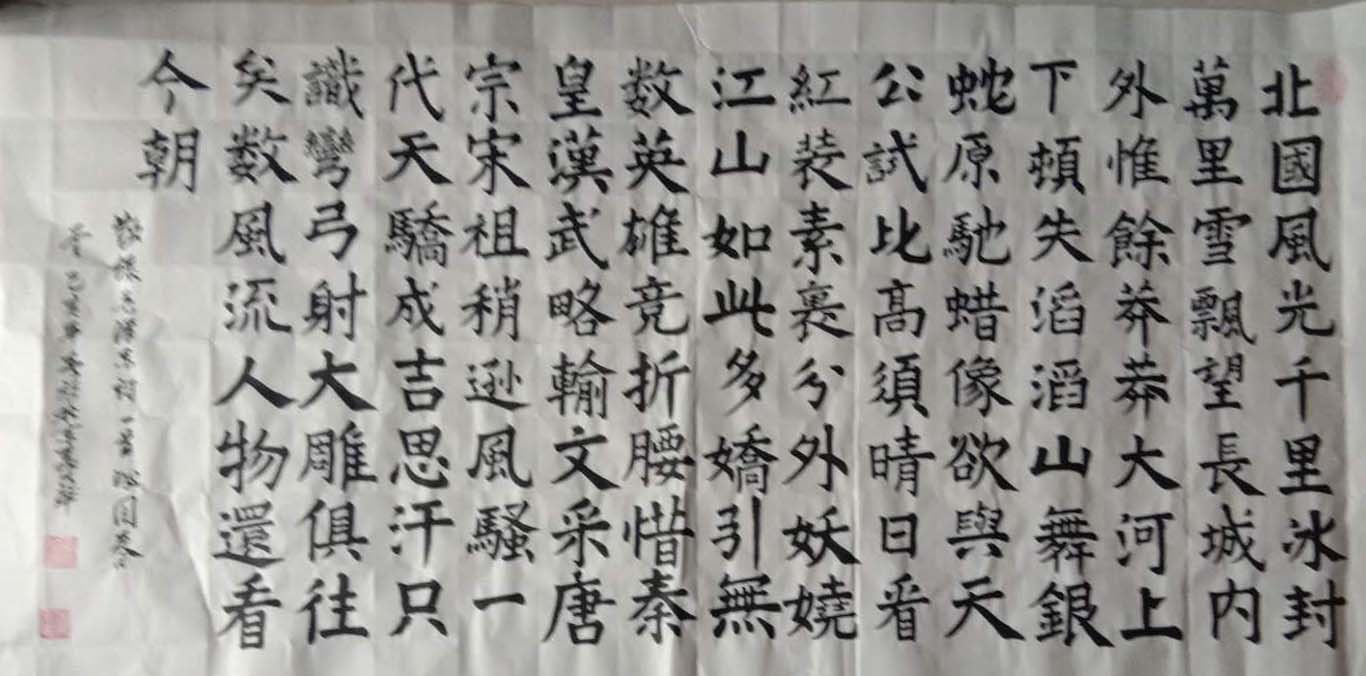 北國風光千里冰封
萬里雪飄望長城内
外惟餘莽莽大河上
下頓失滔滔山舞銀
蛇原馳蜡像欲與天
公試比高須晴日看
紅装素裹分外妖嬈
江山如此多嬌引無
数英雄竞折腰惜秦
皇漢武略輸文采唐
宗宋祖稍逊風騷一
代天驕成吉思汗只
識彎弓射大雕俱往
矣数風流人物還看
今朝
毛澤东詞一首沁园春
雪己亥年